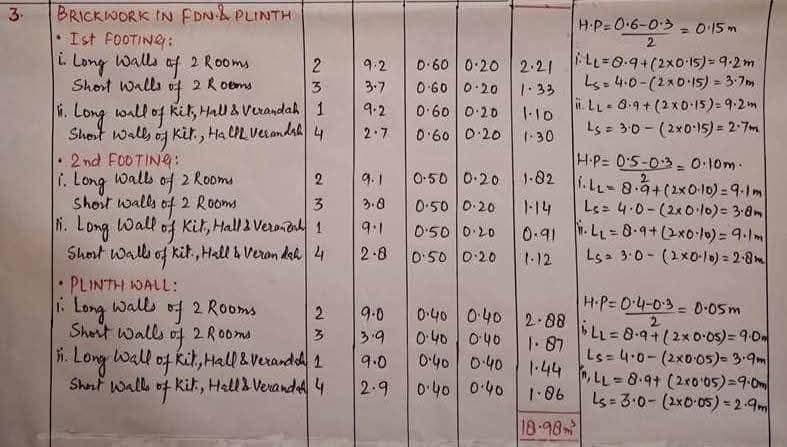 3. BRICKWORK IN FDN. & PLINTH
• Ist FOOTING:
H.P = 0.6-0.3 / 2 = 0.15m
i. Long Walls of 2 Rooms 2 9.2 0.60 0.20 2.21 i. LL = 8.9+(2x0.15)= 9.2m
Short Walls of 2 Rooms 3 3.7 0.60 0.20 1.33 Ls = 4.0-(2x0.15)= 3.7m
ii. Long wall of Kit, Hall & Verandah 1 9.2 0.60 0.20 1.10 ii. LL = 8.9+(2x0.15)= 9.2m
Short Walls of Kit., Hall & Verandah 4 2.7 0.60 0.20 1.30 Ls = 3.0-(2x0.15)= 2.7m
• 2nd FOOTING:
H.P = 0.5-0.3 / 2 = 0.10m.
i. Long Walls of 2 Rooms 2 9.1 0.50 0.20 1.82 i. LL = 8.9+(2x0.10)= 9.1m
Short Walls of 2 Rooms 3 3.8 0.50 0.20 1.14 Ls = 4.0-(2x0.10)= 3.8m
ii. Long Wall of Kit, Hall & Verandah 1 9.1 0.50 0.20 0.91 ii. LL = 8.9+(2x0.10)= 9.1m
Short Walls of Kit., Hall & Verandah 4 2.8 0.50 0.20 1.12 Ls = 3.0-(2x0.10)= 2.8m
• PLINTH WALL:
H.P = 0.4-0.3 / 2 = 0.05m
i. Long Walls of 2 Rooms 2 9.0 0.40 0.40 2.88 i. LL = 8.9+(2x0.05)= 9.0m
Short Walls of 2 Rooms 3 3.9 0.40 0.40 1.87 Ls = 4.0-(2x0.05)= 3.9m
ii. Long Wall of Kit., Hall & Verandah 1 9.0 0.40 0.40 1.44 ii, LL = 8.9+(2x0.05)= 9.0m
Short Walls of Kit., Hall & Verandah 4 2.9 0.40 0.40 1.86 Ls = 3.0-(2x0.05)= 2.9m
18.98m³